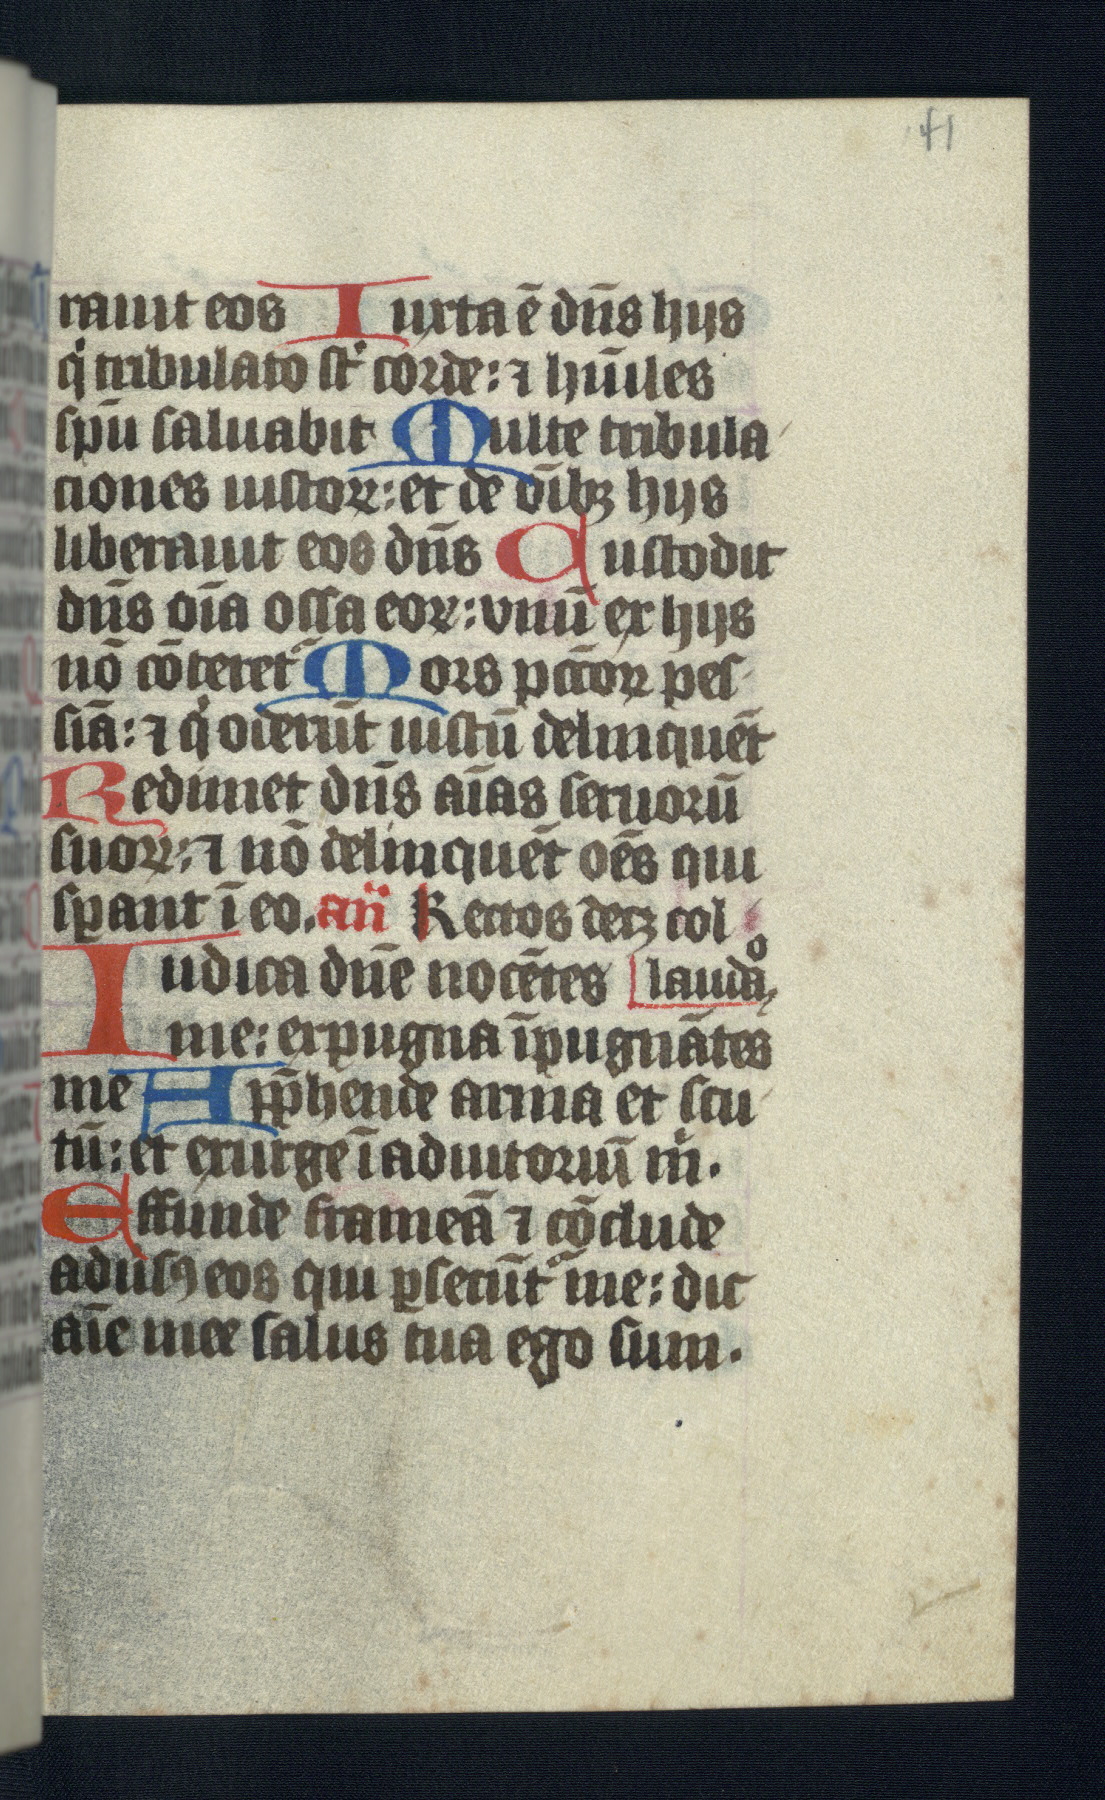 41
rauit eos Iuxta ē dn̄s hijs
qͥ tribulato st̄ corde: ⁊ hūiles
spū saluabit Multe tribula
ciones iustoꝝ: et de oībꝫ hijs
liberauit eos dn̄s Custodit
dn̄s oīa ossa eoꝝ: vnū ex hijs
nō cōteret᷑ Mors pctōꝝ pes
sīa: ⁊ qͥ oderūt iustū delinquēt
Redimet dn̄s aīas seruorū
suoꝝ: ⁊ nō delinquēt oēs qui
spant ī eo. an̄ Rectos decꝫ col
Iudica dn̄e nocētes laudaͦ
me: expugna īpugnātes
me App̄hende arma et scu
tū: et exurge ī adiutoriū mͥ.
Effunde frameā ⁊ cōclude
aduˉsꝰ eos qui ꝑsecūt᷑ me: dic
aīe mee salus tua ego sum.